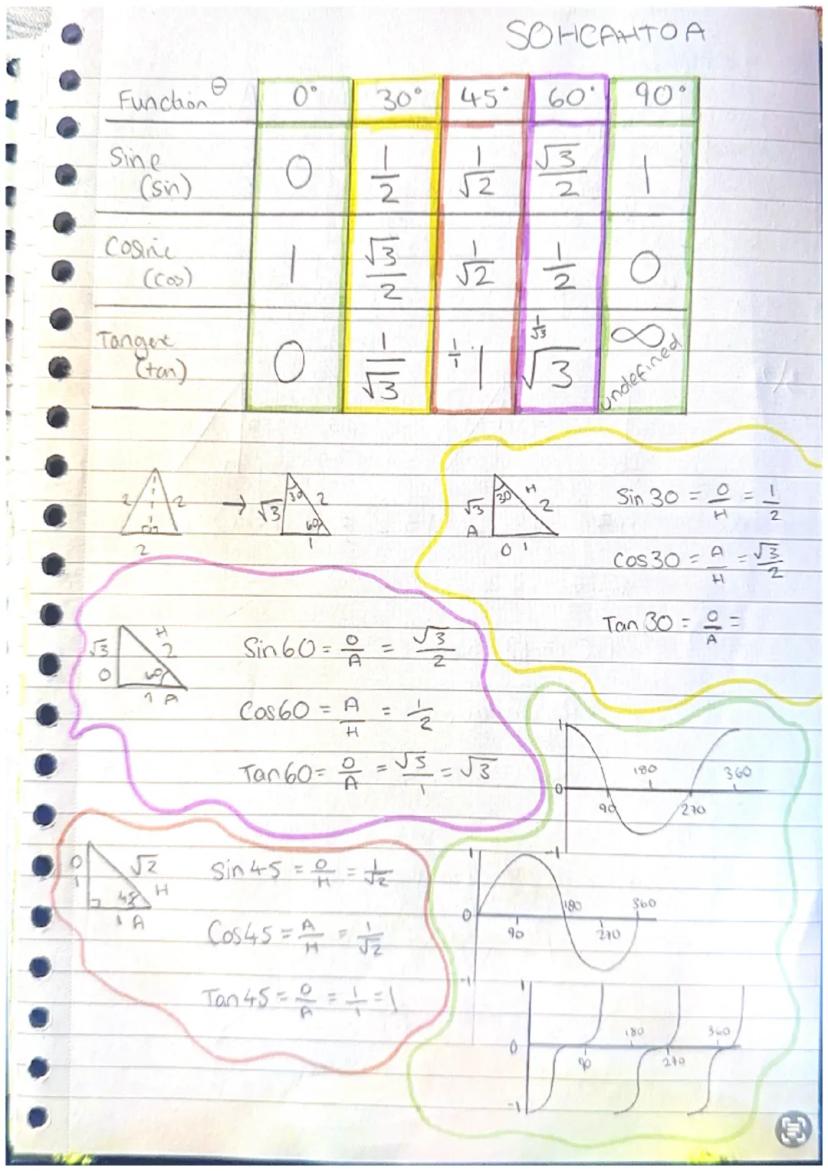 SOHCAHTOA
Function θ 0° 30° 45° 60° 90°
Sine (sin) 0 1/2 1/√2 √3/2 1
Cosine (cos) 1 √3/2 1/√2 1/2 0
Tangent (tan) 0 1/√3 1/1 1 1/√3 √3 ∞ undefined
2 2 2 → √3 30 2 60 1
√3 A 30 H 2 O 1
Sin 30 = O/H = 1/2
Cos30 = A/H = √3/2
Tan 30 = O/A =
√3 O H 2 60 1 A
Sin60 = O/A = √3/2
Cos60 = A/H = 1/2
Tan60 = O/A = √3/1 = √3
O 1 √2 H 45 1 A
Sin45 = O/H = 1/√2
Cos45 = A/H = 1/√2
Tan45 = O/A = 1/1 = 1
1 0 -1 90 180 270 360
1 0 -1 90 180 270 360
1 0 -1 90 180 270 360